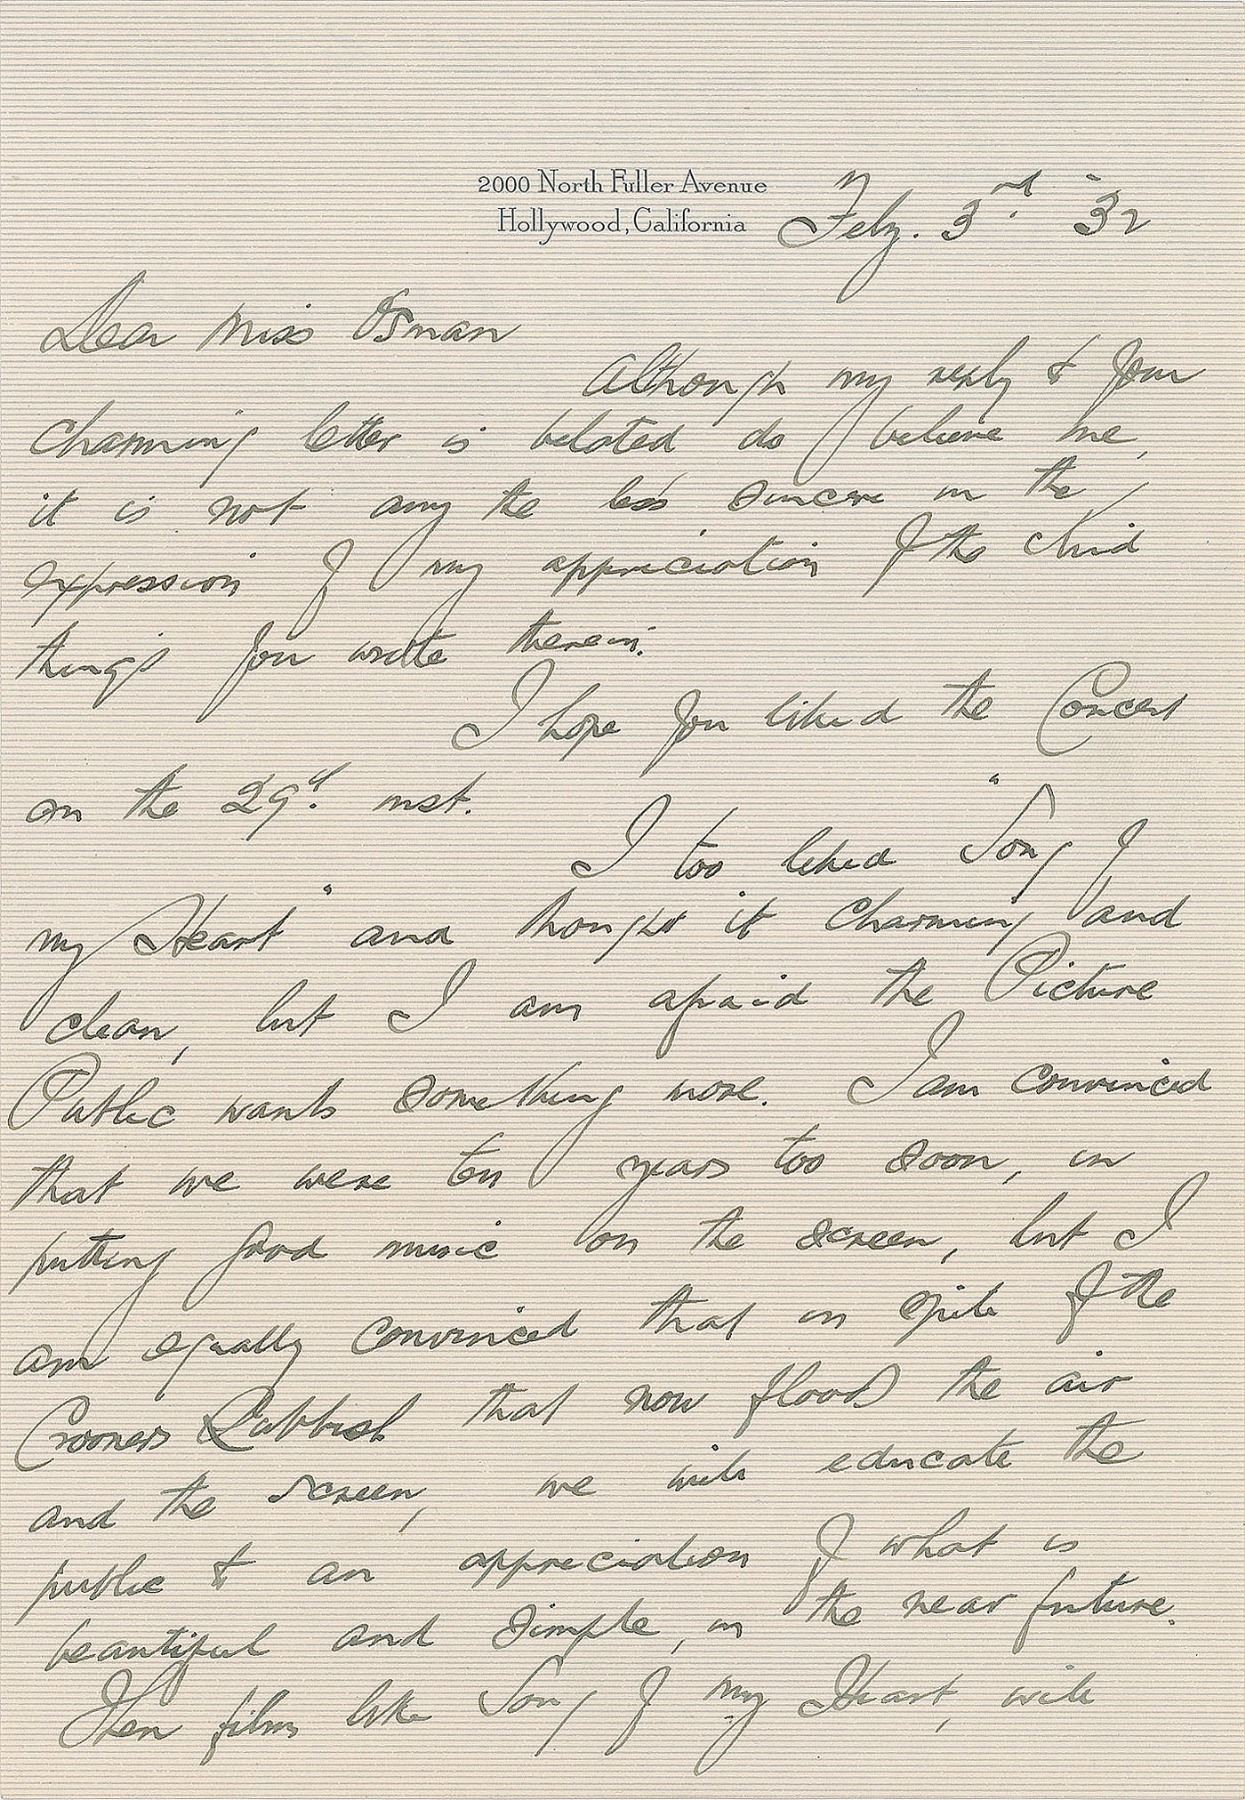 2000 North Fuller Avenue
Hollywood, California
Feby. 3rd. "32
Dear Miss Osman
Although my reply to your
charming letter is belated do believe me,
it is not any the less sincere in the
expression of my appreciation of the kind
things you wrote therein.
I hope you liked the Concert
on the 29th. inst.
I too liked "Song of
my Heart" and thought it charming and
clean, but I am afraid the Picture
Public wants something more. I am convinced
that we were ten years too soon, in
putting good music on the screen, but I
am equally convinced that in spite of the
Crooners Rubbish that now floods the air
and the screen, we will educate the
public to an appreciation of what is
beautiful and simple, in the near future.
Then films like Song of my Heart, will